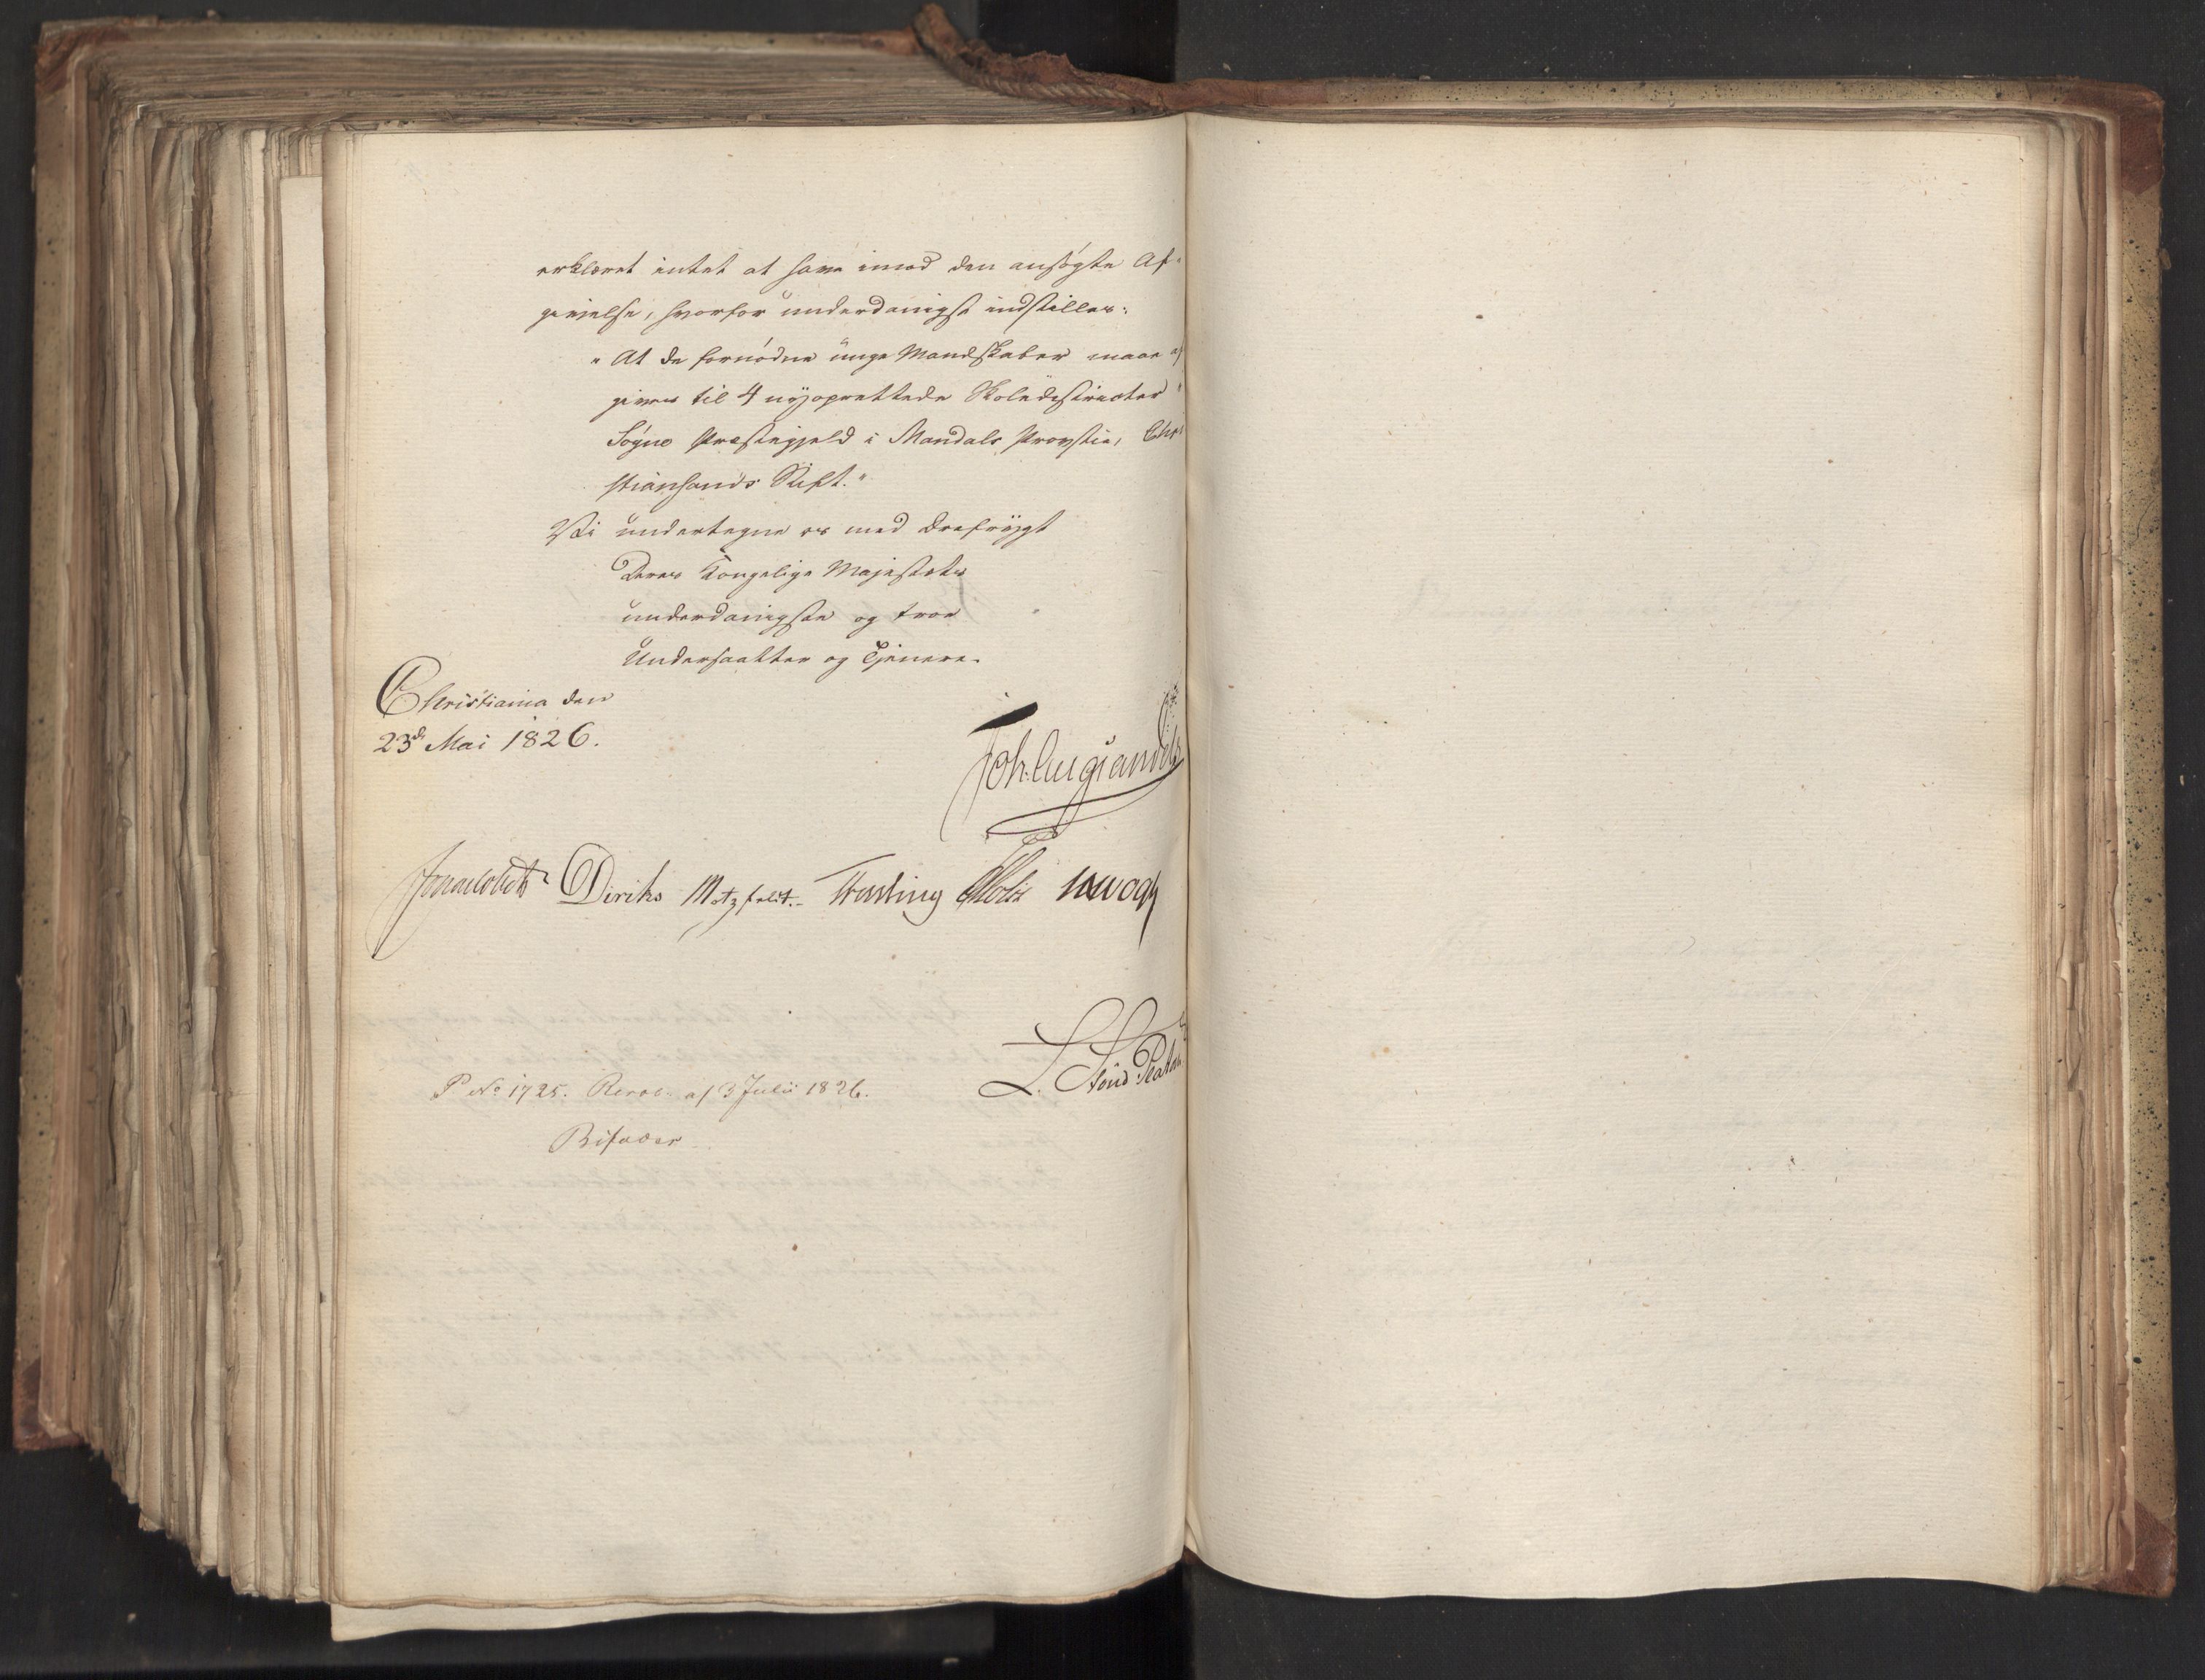 erklæret intet at have imod den ansøgte Af-
givelse, hvorfor underdanigst indstilles:
"At de fornødne unge Mandskaber maae af
gives til 4 nyoprettede Skoledistricter
Søgne Præstegjeld i Mandals Provstie, Chri
stiansands Stift."
Vi undertegne os med Ærefrygt
Deres Kongelige Majestæts
underdanigste og troe
Undersaatter og Tjenere.
Christiania den
23de Mai 1826.
Joh. Aug. Sandels
Jonas Collett Diriks Motzfeldt. Treschow Holst Krogh
L. Stoud Platou
P No 1725. Resol. af 3 Julii 1826.
Bifaldes